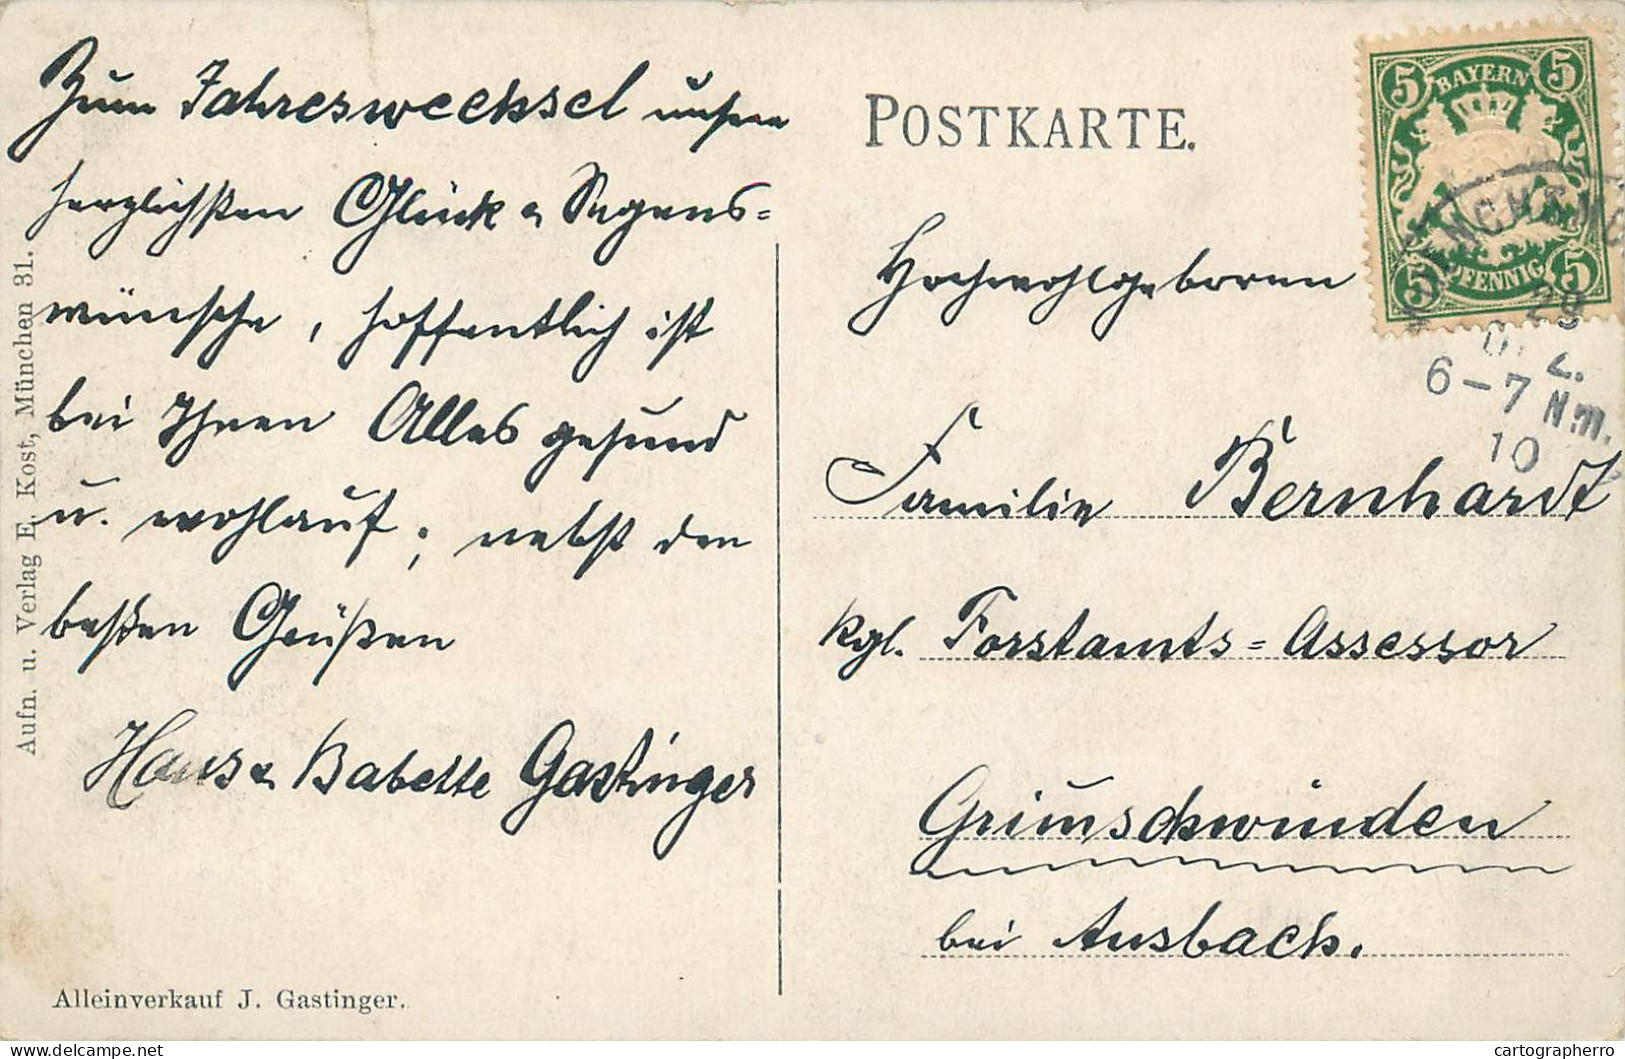 Zum Jahreswechsel unsere
herzlichsten Glück u Segens=
wünsche, hoffentlich ist
bei Ihnen Alles gesund
u. wohlauf; nebst den
besten Grüßen
Hans u Babette Gastinger
Aufn. u. Verlag E. Kost, München 31.
Alleinverkauf J. Gastinger.
POSTKARTE.
BAYERN
5 5
5 5
PFENNIG
29
6-7 Nm.
10
Hochwohlgeboren
Familie Bernhardt
kgl. Forstamts=Assessor
Grimschwinden
bei Ansbach.
delcampe.net
cartographerro